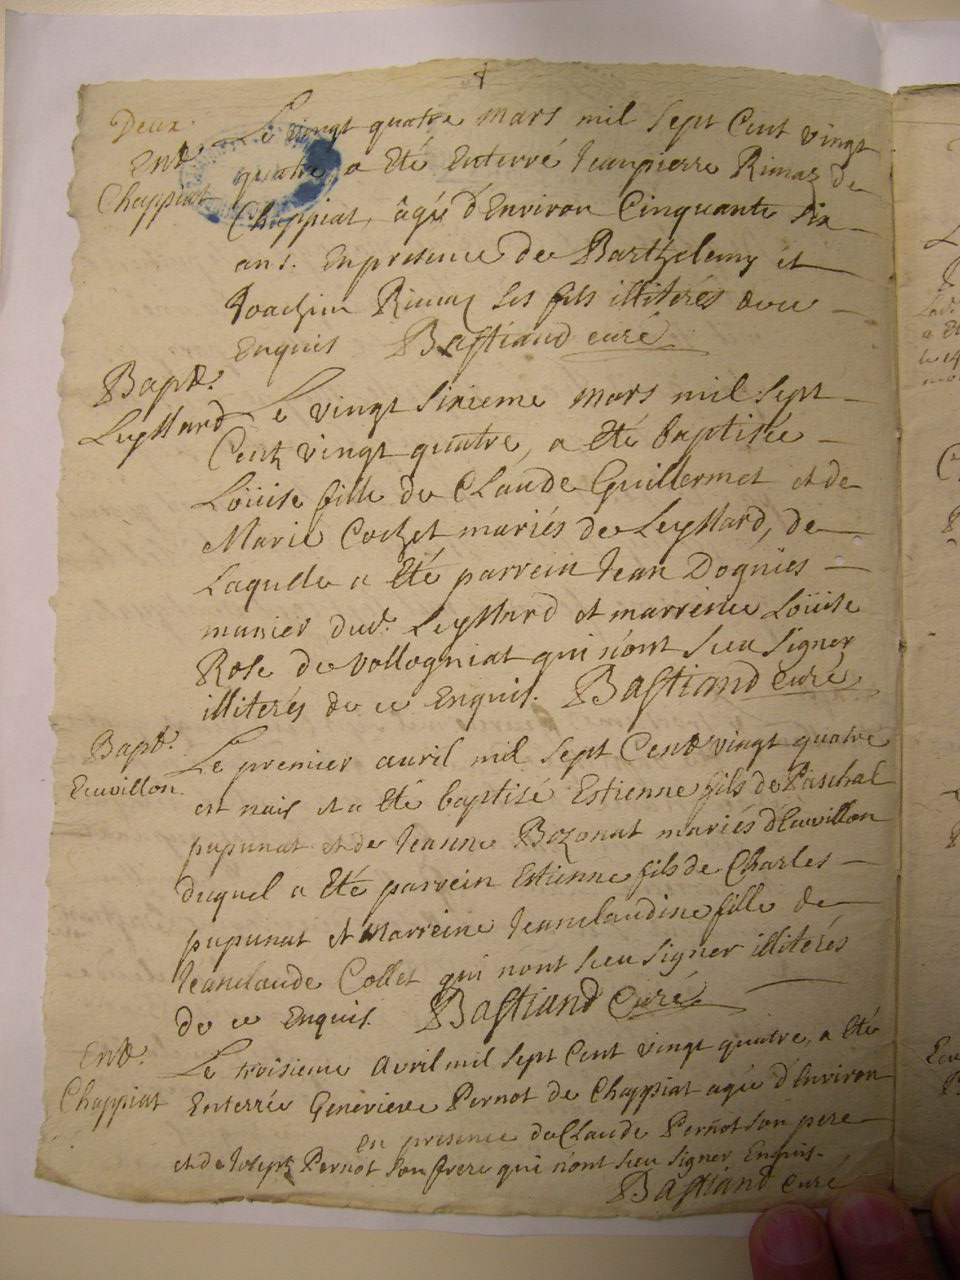 Deux
Le vingt quatre mars mil sept Cent vingt
Entt. Chappiat
quatre a Eté Enterré Jeanpierre Rimaz de
Chappiat, âgé d'Environ Cinquante six
ans. En presence de Barthelemy et
Joachim Rimaz ses fils illiterés de ce
Enquis Bastiand curé
Bapt.
Leyssard
Le vingt sixieme mars mil sept
Cent vingt quatre, a Eté baptisée
Loüise fille de Claude Guillermet et de
Marie Cochet mariés de Leyssard, de
Laquelle a Eté parrein Jean Dognies
munier dud. Leyssard et marreine Loüise
Rose de Vollogniat qui n'ont sceu signer
illiterés de ce Enquis. Bastiand Curé
Bapt.
Ecuvillon.
Le premier avril mil sept Cent vingt quatre
est nais et a Eté baptisé Estienne fils de Paschal
pupunat et de Jeanne Bozonat mariés d'Ecuvillon
duquel a Eté parrein Estienne fils de Charles
pupunat et Marreine Jeanclaudine fille de
Jeanclaude Collet qui nont sceu signer illiterés
de ce Enquis. Bastiand Curé
Entt.
Chappiat
Le troisieme Avril mil sept Cent vingt quatre, a Eté
Enterrée Genevieve Pernot de Chappiat agée d'Environ
en presence de Claude Pernot son pere
et de Joseph Pernot son frere qui n'ont sceu signer Enquis.
Bastiand Curé